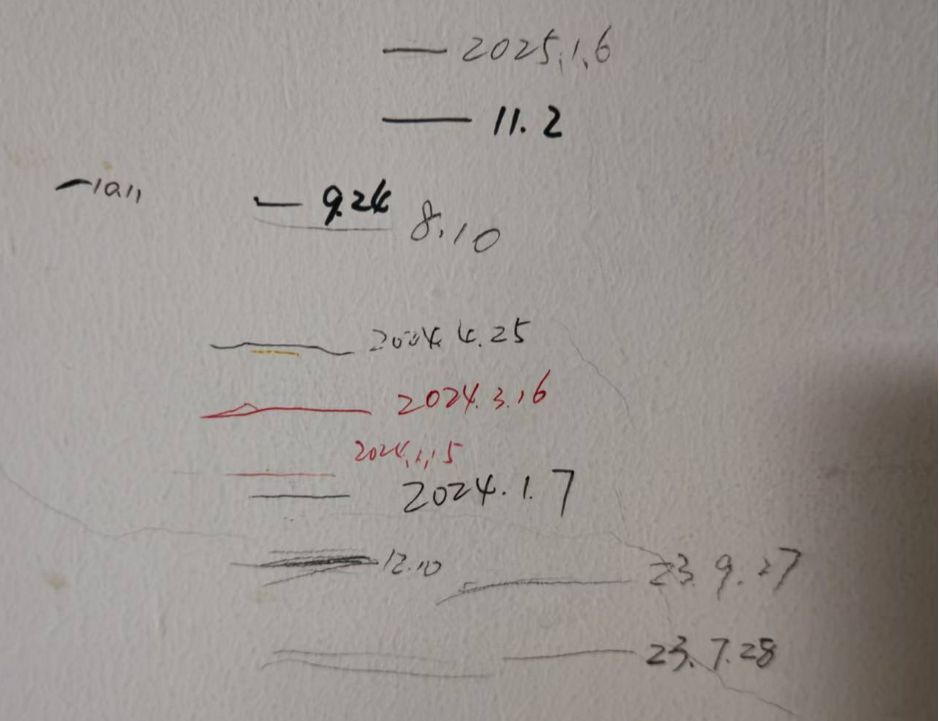 2025.1.6
11.2
10.11
9.24
8.10
2024.4.25
2024.3.16
2024.1.15
2024.1.7
12.10
23.9.27
23.7.28